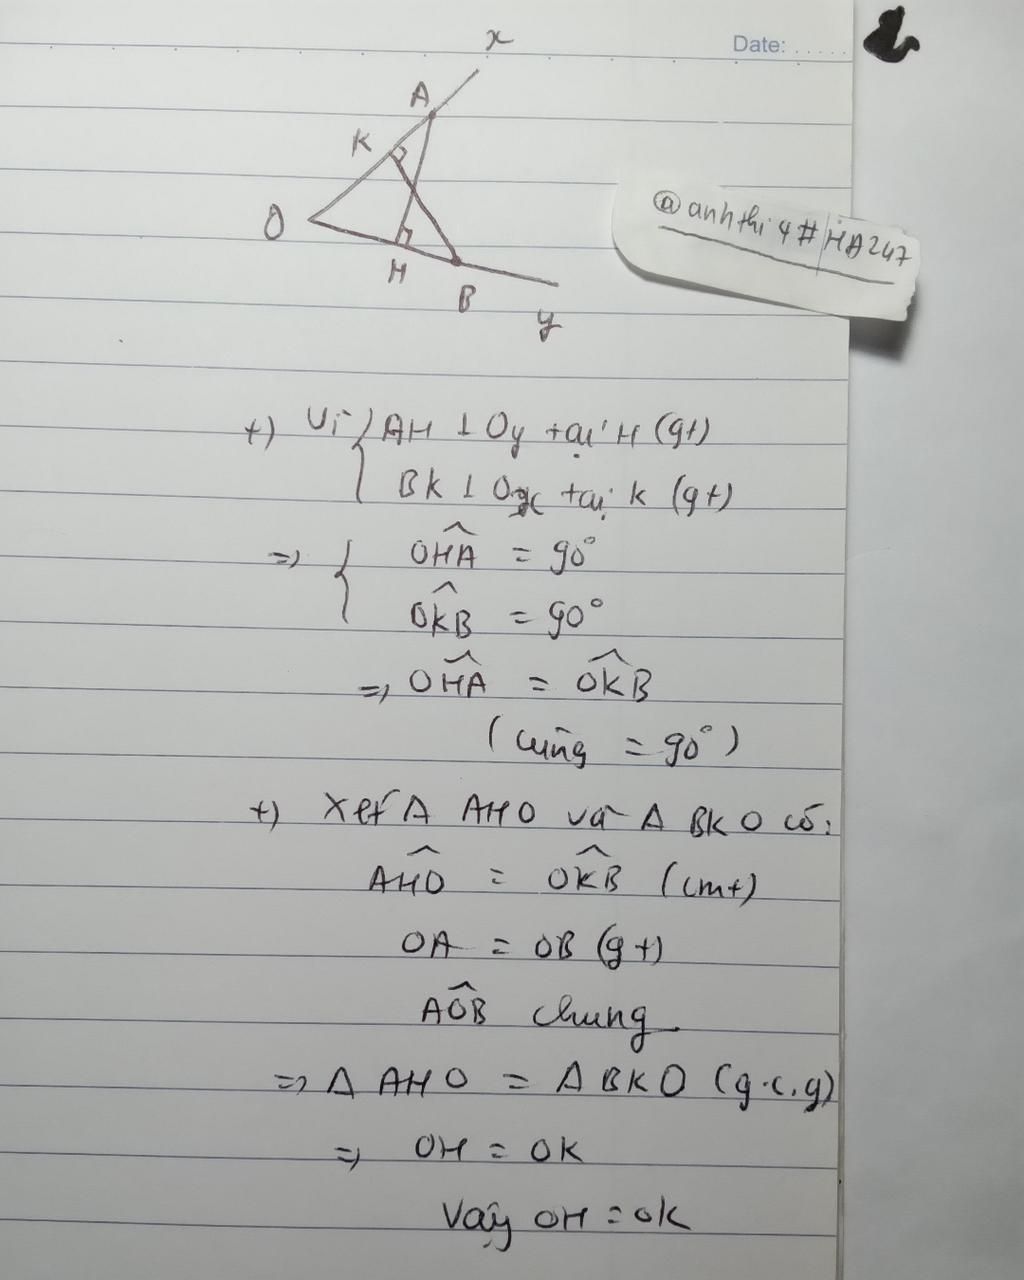 x
Date: ......
A
K
@anhthi4#HA247
O
H
B
y
+) Vì { AH ⊥ Oy tại H (gt)
BK ⊥ Ox tại K (gt)
=> { OHA^ = 90°
OKB^ = 90°
=> OHA^ = OKB^
(cùng = 90°)
+) Xét Δ AHO và Δ BKO có:
AHO^ = OKB^ (cmt)
OA = OB (gt)
AOB^ chung
=> Δ AHO = Δ BKO (g.c.g)
=> OH = OK
Vậy OH = OK